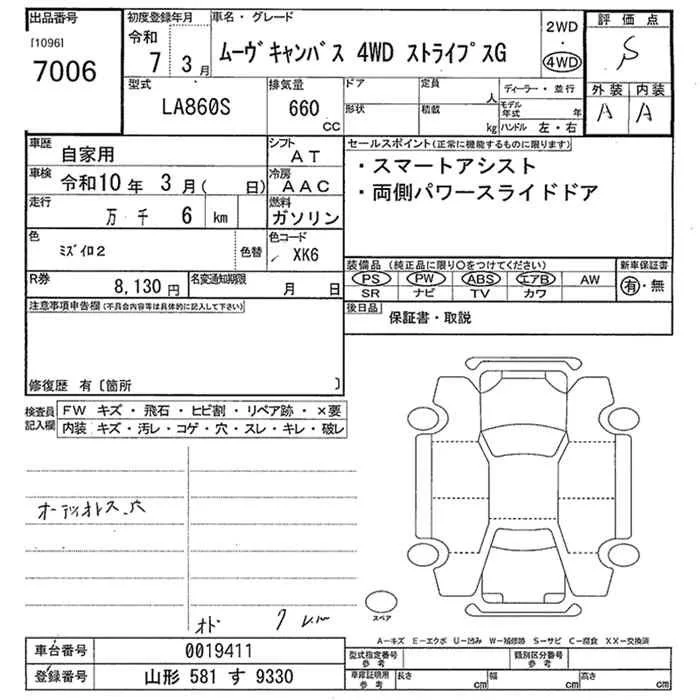 出品番号
[1096]
7006
初度登録年月
令和
7 3月
車名・グレード
ムーヴキャンバス 4WD ストライプスG
2WD
・
4WD
評価点
S
外装 内装
A A
型式
LA860S
排気量
660
CC
ドア
形状
定員
人
積載
kg
ディーラー・並行
モデル年式 年
ハンドル 左・右
車歴
自家用
シフト
AT
車検
令和10年 3月( 日)
冷房
AAC
走行
万 千 6 km
燃料
ガソリン
色
ミズイロ2
色替
色コード
XK6
R券
8,130円
名変通知期限
月 日
セールスポイント(正常に機能するものに限ります)
・スマートアシスト
・両側パワースライドドア
装備品(純正品に限り○をつけてください)
PS PW ABS エアB AW
SR ナビ TV カワ
新車保証書
有・無
後日品
保証書・取説
注意事項申告欄(不具合内容等は具体的に記入して下さい)
修復歴 有〔箇所 〕
検査員記入欄
FW キズ・飛石・ヒビ割・リペア跡・×要
内装 キズ・汚レ・コゲ・穴・スレ・キレ・破レ
オーディオレス穴
オド 7 km
スペア
A−キズ E−エクボ U−凹み W−補修跡 S−サビ C−腐食 XX−交換済
車台番号
0019411
登録番号
山形 581 す 9330
型式指定番号
参考
類別区分番号
参考
車庫証明用
参考
長さ cm
幅 cm
高さ cm